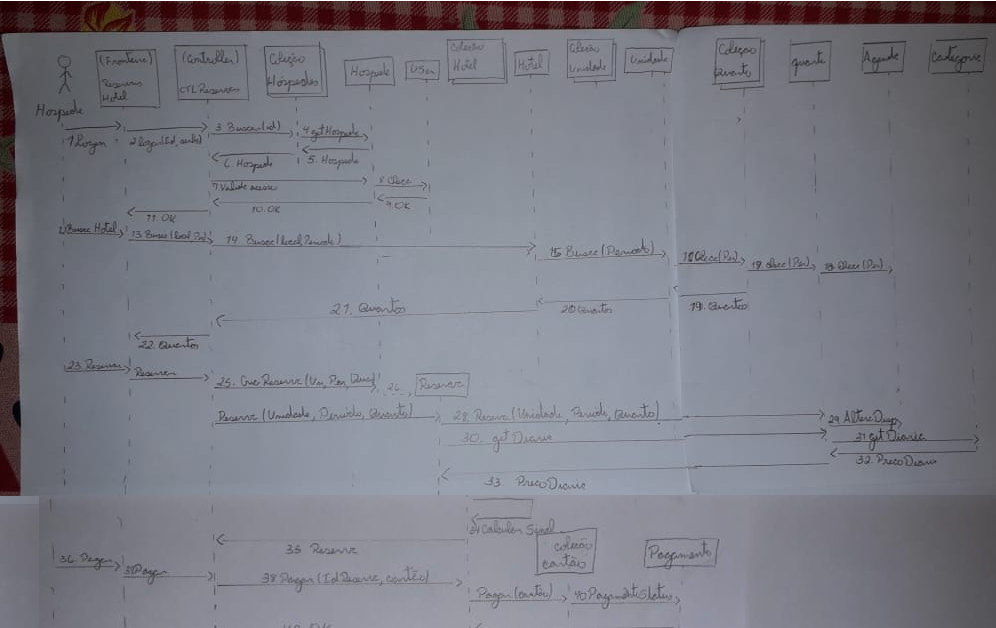 Hospede
(Fronteira)
Reserva
Hotel
(Controller)
CTL Reserva
Coleção
Hóspedes
Hospede
User
Coleção
Hotel
Hotel
Coleção
Unidade
Unidade
Coleção
Quarto
quarto
Agenda
Categoria
1 Login
2 login(id, senha)
3 Buscar(id)
4 getHospede
5. Hospede
6. Hospede
7. Valida acesso
9. OK
10. OK
11. OK
Busca Hotel
13 Busca (local, Per)
14. Busca (local, Periodo)
15 Busca (Periodo)
(Per)
18. (Per)
(Per)
19. Quartos
20 Quartos
21. Quartos
22. Quartos
23. Reserva
Reserva
25. Cria Reserva (Un, Per,
26
Reserva
Reserva (Unidade, Periodo, Quarto)
28. Reserva (Unidade, Periodo, Quarto)
29 Altera Disp
30. get Diaria
31 get Diaria
32. Preco Diaria
33 Preco Diaria
34 Calcular Sinal
35 Reserva
coleção
cartão
Pagamento
36. Pagar
37 Pagar
38 Pagar (Id Reserva, cartão)
Pagar (cartão)
40 Pagamento Status